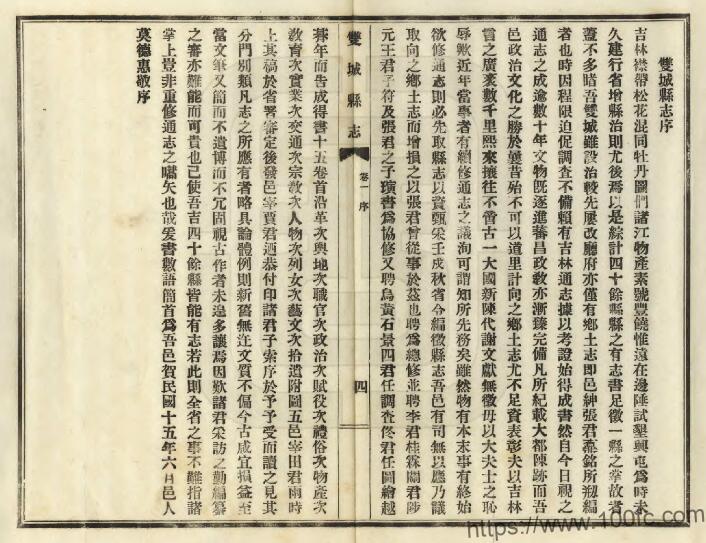 雙城縣志序
吉林襟帶松花混同牡丹圖們諸江物產素號豐饒惟遠在邊陲試墾興屯爲時未
久建行省增縣治則尤後焉以是綜計四十餘縣縣之有志書足徵一縣之掌故者
蓋不多睹吾雙城雖設治較先屢改廳府亦僅有鄉土志即邑紳張君
者也時因程限迫促調查不備賴有吉林通志據以考證始得成書然自今日視之
通志之成逾數十年文物旣逐進蕃昌政敎亦漸臻完備凡所紀載大都陳跡而吾
邑政治文化之勝於曩昔殆不可以道里計向之鄉土志尤不足資表彰夫以吉林
言之廣袤數千里熙來攘往不啻古一大國新陳代謝文獻無徵毋以大夫士之恥
辱歟近年當事者有續修通志之議洵可謂知所先務矣雖然物有本末事有終始
欲修通志則必先取縣志以資甄采壬戌秋省令編徵縣志吾邑有司無以應乃議
取向之鄉土志而增損之以張君曾從事於茲也聘爲總修並聘李君桂霖關君陟
元王君子符及張君之子瓚書爲協修又聘烏黃石景四君任調查佟君任圖繪越
雙城縣志
卷一 序
四
朞年而告成得書十五卷首沿革次輿地次職官次政治次賦役次禮俗次物產次
敎育次實業次交通次宗敎次人物次列女次藝文次拾遺附圖五邑宰田君雨時
上其稿於省署審定後發邑宰賈君迺恭付印諸君子索序於予予受而讀之見其
分門別類凡志之所應有者略具論體例則新舊無迕文質不偏今古咸宜損益至
當文筆又簡而不遺博而不冗固視古作者未遑多讓焉因歎諸君采訪之勤編纂
之審亦難能而可貴也已使吾吉四十餘縣皆能有志若此則全省之事不難指諸
掌上豈非重修通志之嚆矢也哉爰書數語簡首爲吾邑賀民國十五年六月邑人
莫德惠敬序
https://www.100fc.com